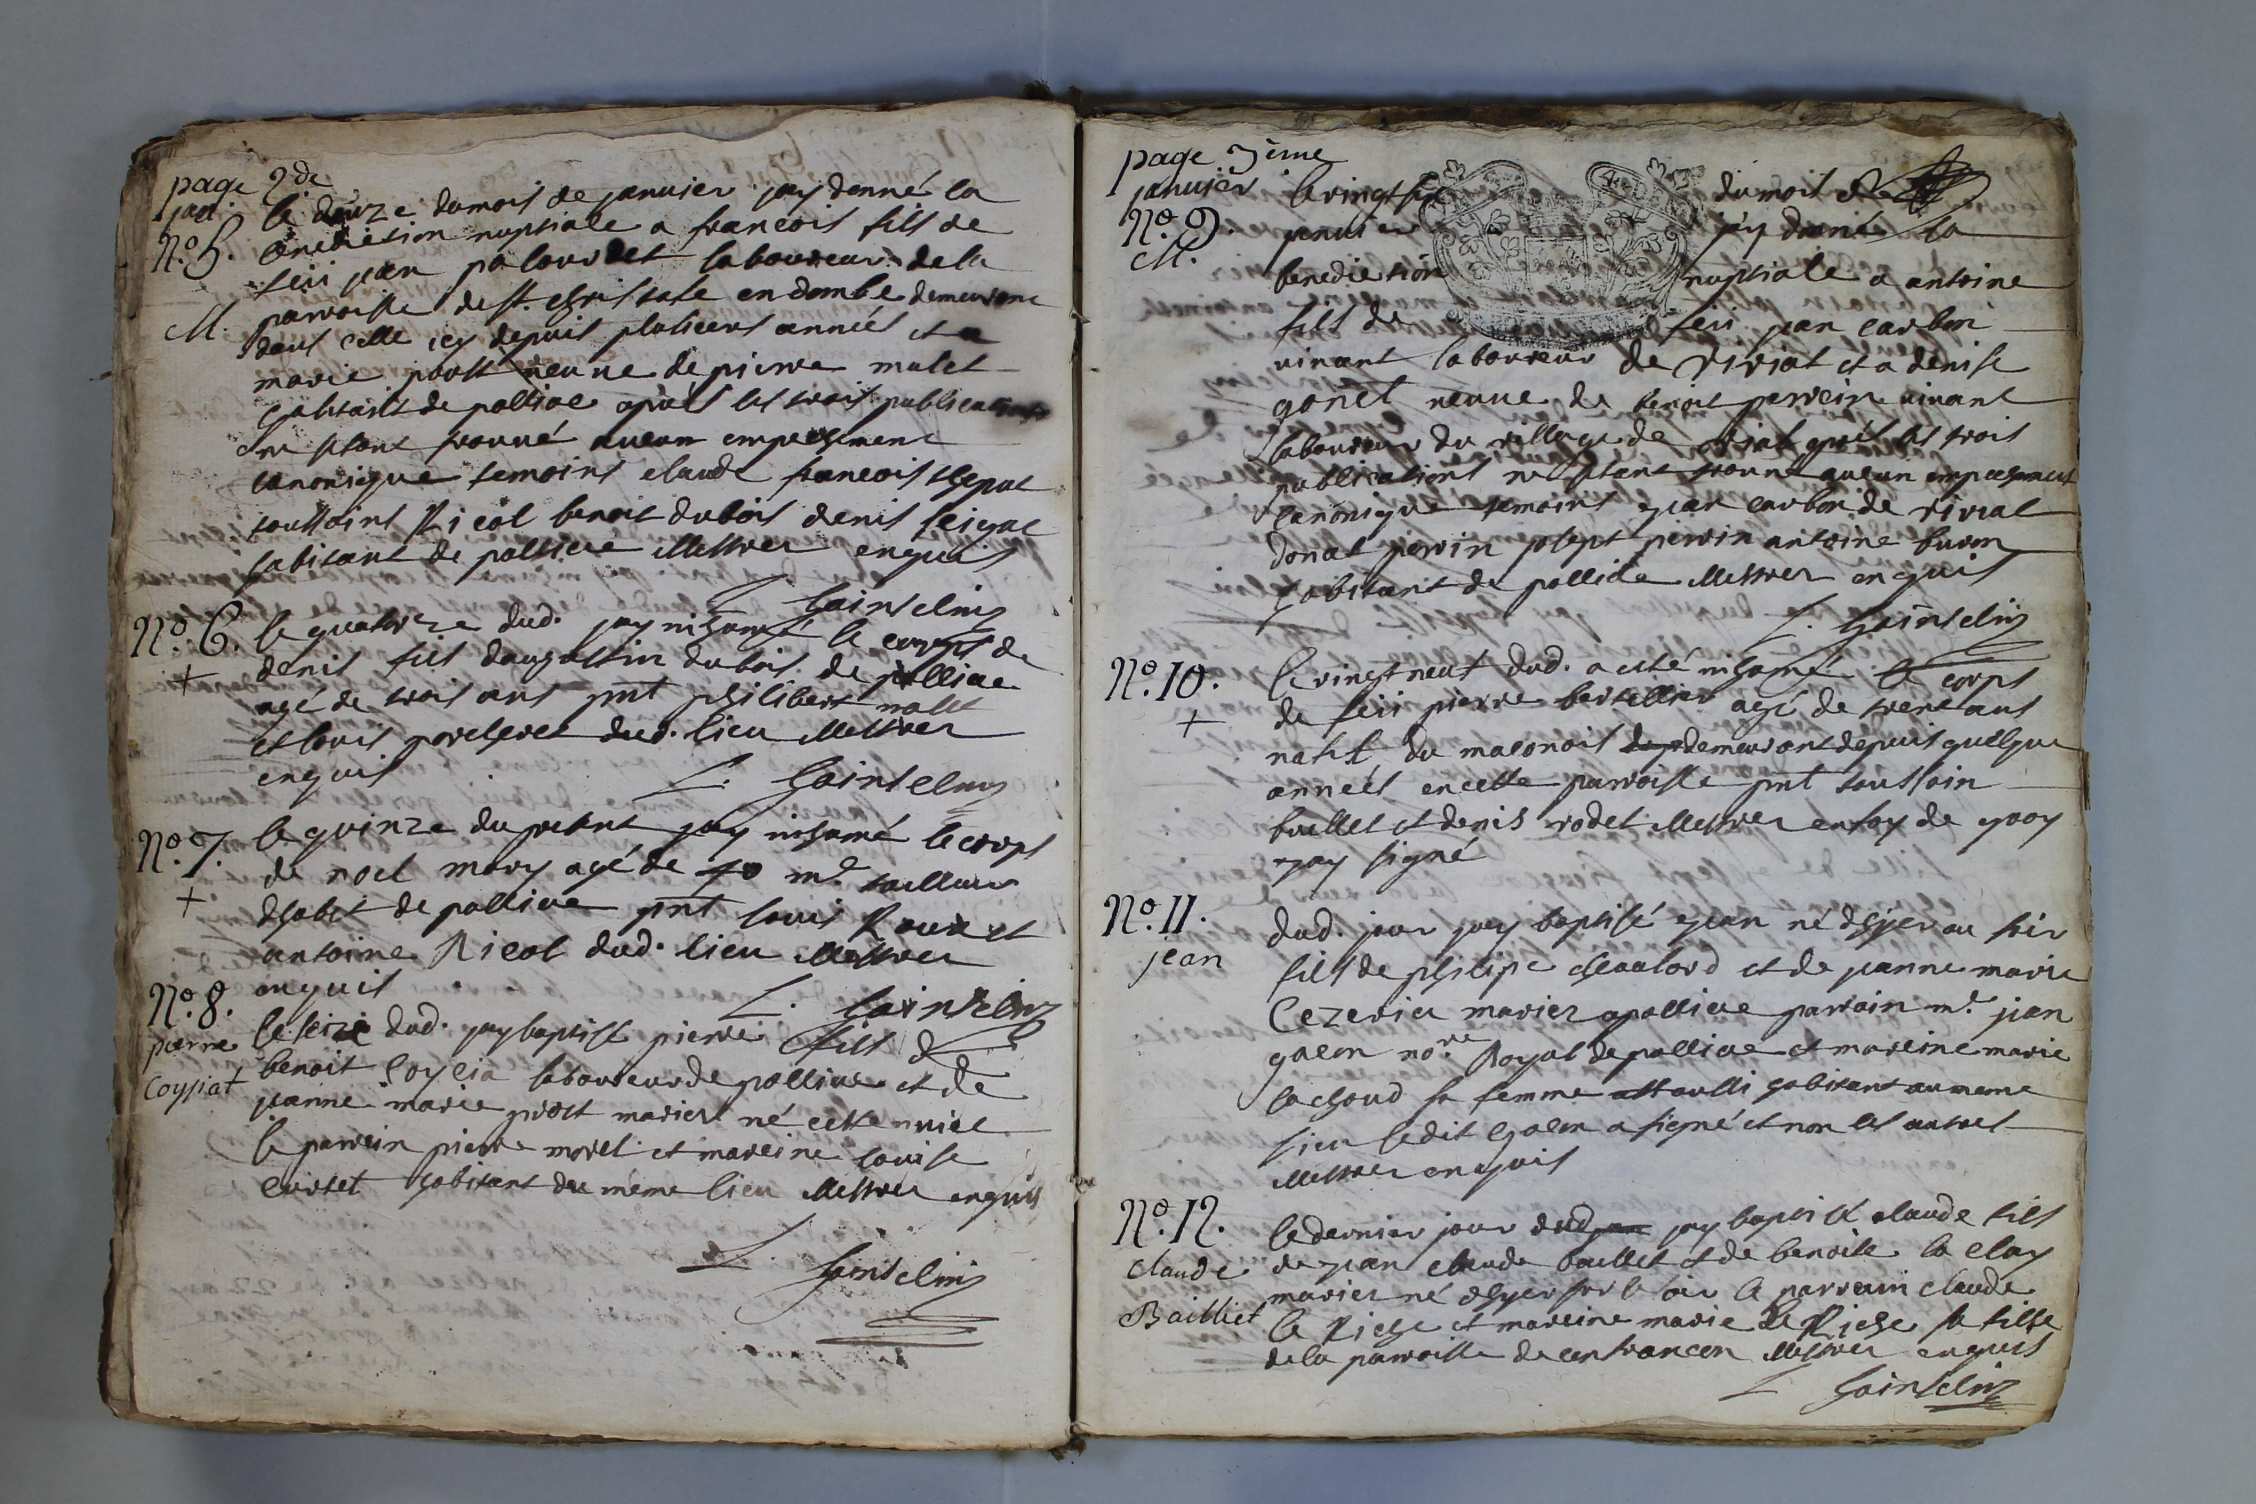 page 2de
jan.
le douze du mois de janvier jay donné la
No. 5.
benediction nuptiale a francois fils de
feu jean palourdet laboureur de la
M.
parroisse de st. christofe en dombe demeurant
dans celle icy depuis plusieurs années et a
marie prost veuve de pierre mulet
habitants de polliac apres les trois publications
ne sétant trouvé aucun empechement
canonique temoins claude francois chepat
toussaint Nicol benoit dubois denis
habitant de polliac illettrez enquis
L. Gainselin
No. 6.
le quatorze dud. jay inhumé le corps de
+
denis fils daugustin dubois de polliac
agé de trois ans pnt philibert
et louis porcheret dud. lieu illettrez
enquis
L. Gainselin
No. 7.
le quinze du present jay inhumé le corps
+
de noel mory agé de 40 md. tailleur
dhabit de polliac pnt louis Roux et
antoine Nicol dud. lieu illettrez
enquis
L. Gainselin
No. 8.
pierre
Coysiat
le seize dud. jay baptisé pierre fils de
benoit Coysia laboureur de polliac et de
jeanne marie prost mariez né cette nuict
le parrein pierre morel et mareine louise
curtet habitant du même lieu illettrez enquis
L. Gainselin
page 3ème
janvier
No. 9.
M.
le vingt six du mois de
janvier jay donné la
benediction nuptiale a antoine
fils de feu jean carbon
vivant laboureur de viriat et a denise
gonet veuve de benoit perrein vivant
laboureur du village de les trois
publications ne sétant trouvé aucun empechement
canonique temoins jean carbon de viriat
donat perrin josept perrin antoine buron
habitant de polliac illettrez enquis
L. Gainselin
No. 10.
+
le vingt neuf dud. a esté inhumé le corps
de feu pierre bertellier agé de trente ans
natif du maconois demeurant depuis quelque
années en cette parroisse pnt toussoin
buellet et denis rodet illettrez en foy de quoy
jay signé
No. 11.
jean
dud. jour jay baptisé jean né dhyer au soir
fils de philipe chevalord et de jeanne marie
Cezerier mariez a polliac parrain md. jean
golon nore. Royal de polliac et mareine marie
lachoud sa femme aussi habitant au meme
lieu ledit golon a signé et non les autres
illettrez enquis
No. 12.
claude
Bailliet
le dernier jour dud jay baptisé claude fils
de jean claude baillet et de benoite la clay
mariez né dhyer sur le soir le parrain claude
le Riche et mareine marie le Riche sa fille
de la parroisse de confrancon illettrez enquis
L. Gainselin